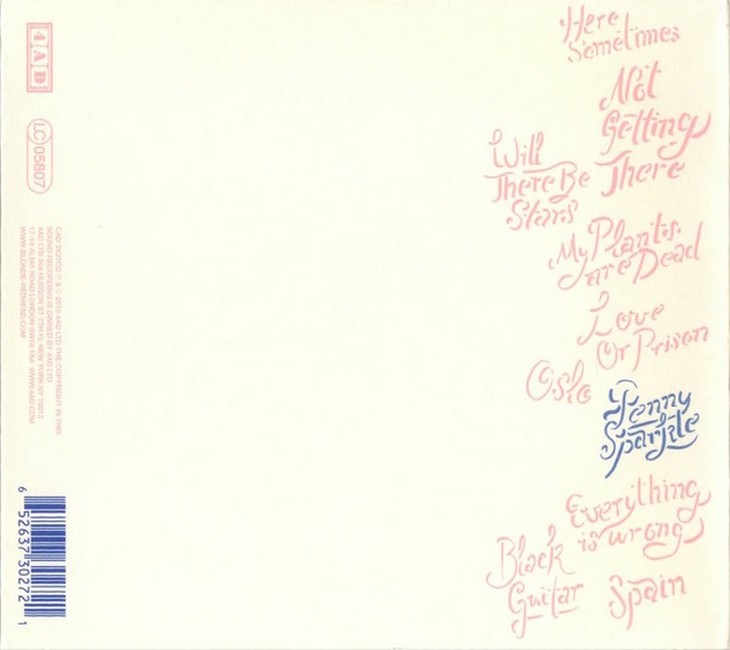 Here
Sometimes
Not
Getting
There
Will
There Be
Stars
My Plants
are Dead
Love
Or Prison
Oslo
Penny
Sparkle
Everything
is wrong
Black
Guitar
Spain
4AD
LC 05807
CAD 3X27CD ℗ & © 2010 4AD LTD THE COPYRIGHT IN THIS
SOUND RECORDING IS OWNED BY 4AD LTD
4AD LTD 304 HUDSON ST 7TH FL NEW YORK NY 10013
17-19 ALMA ROAD LONDON SW18 1AA WWW.4AD.COM
WWW.BLONDE-REDHEAD.COM
6 52637 30272 1